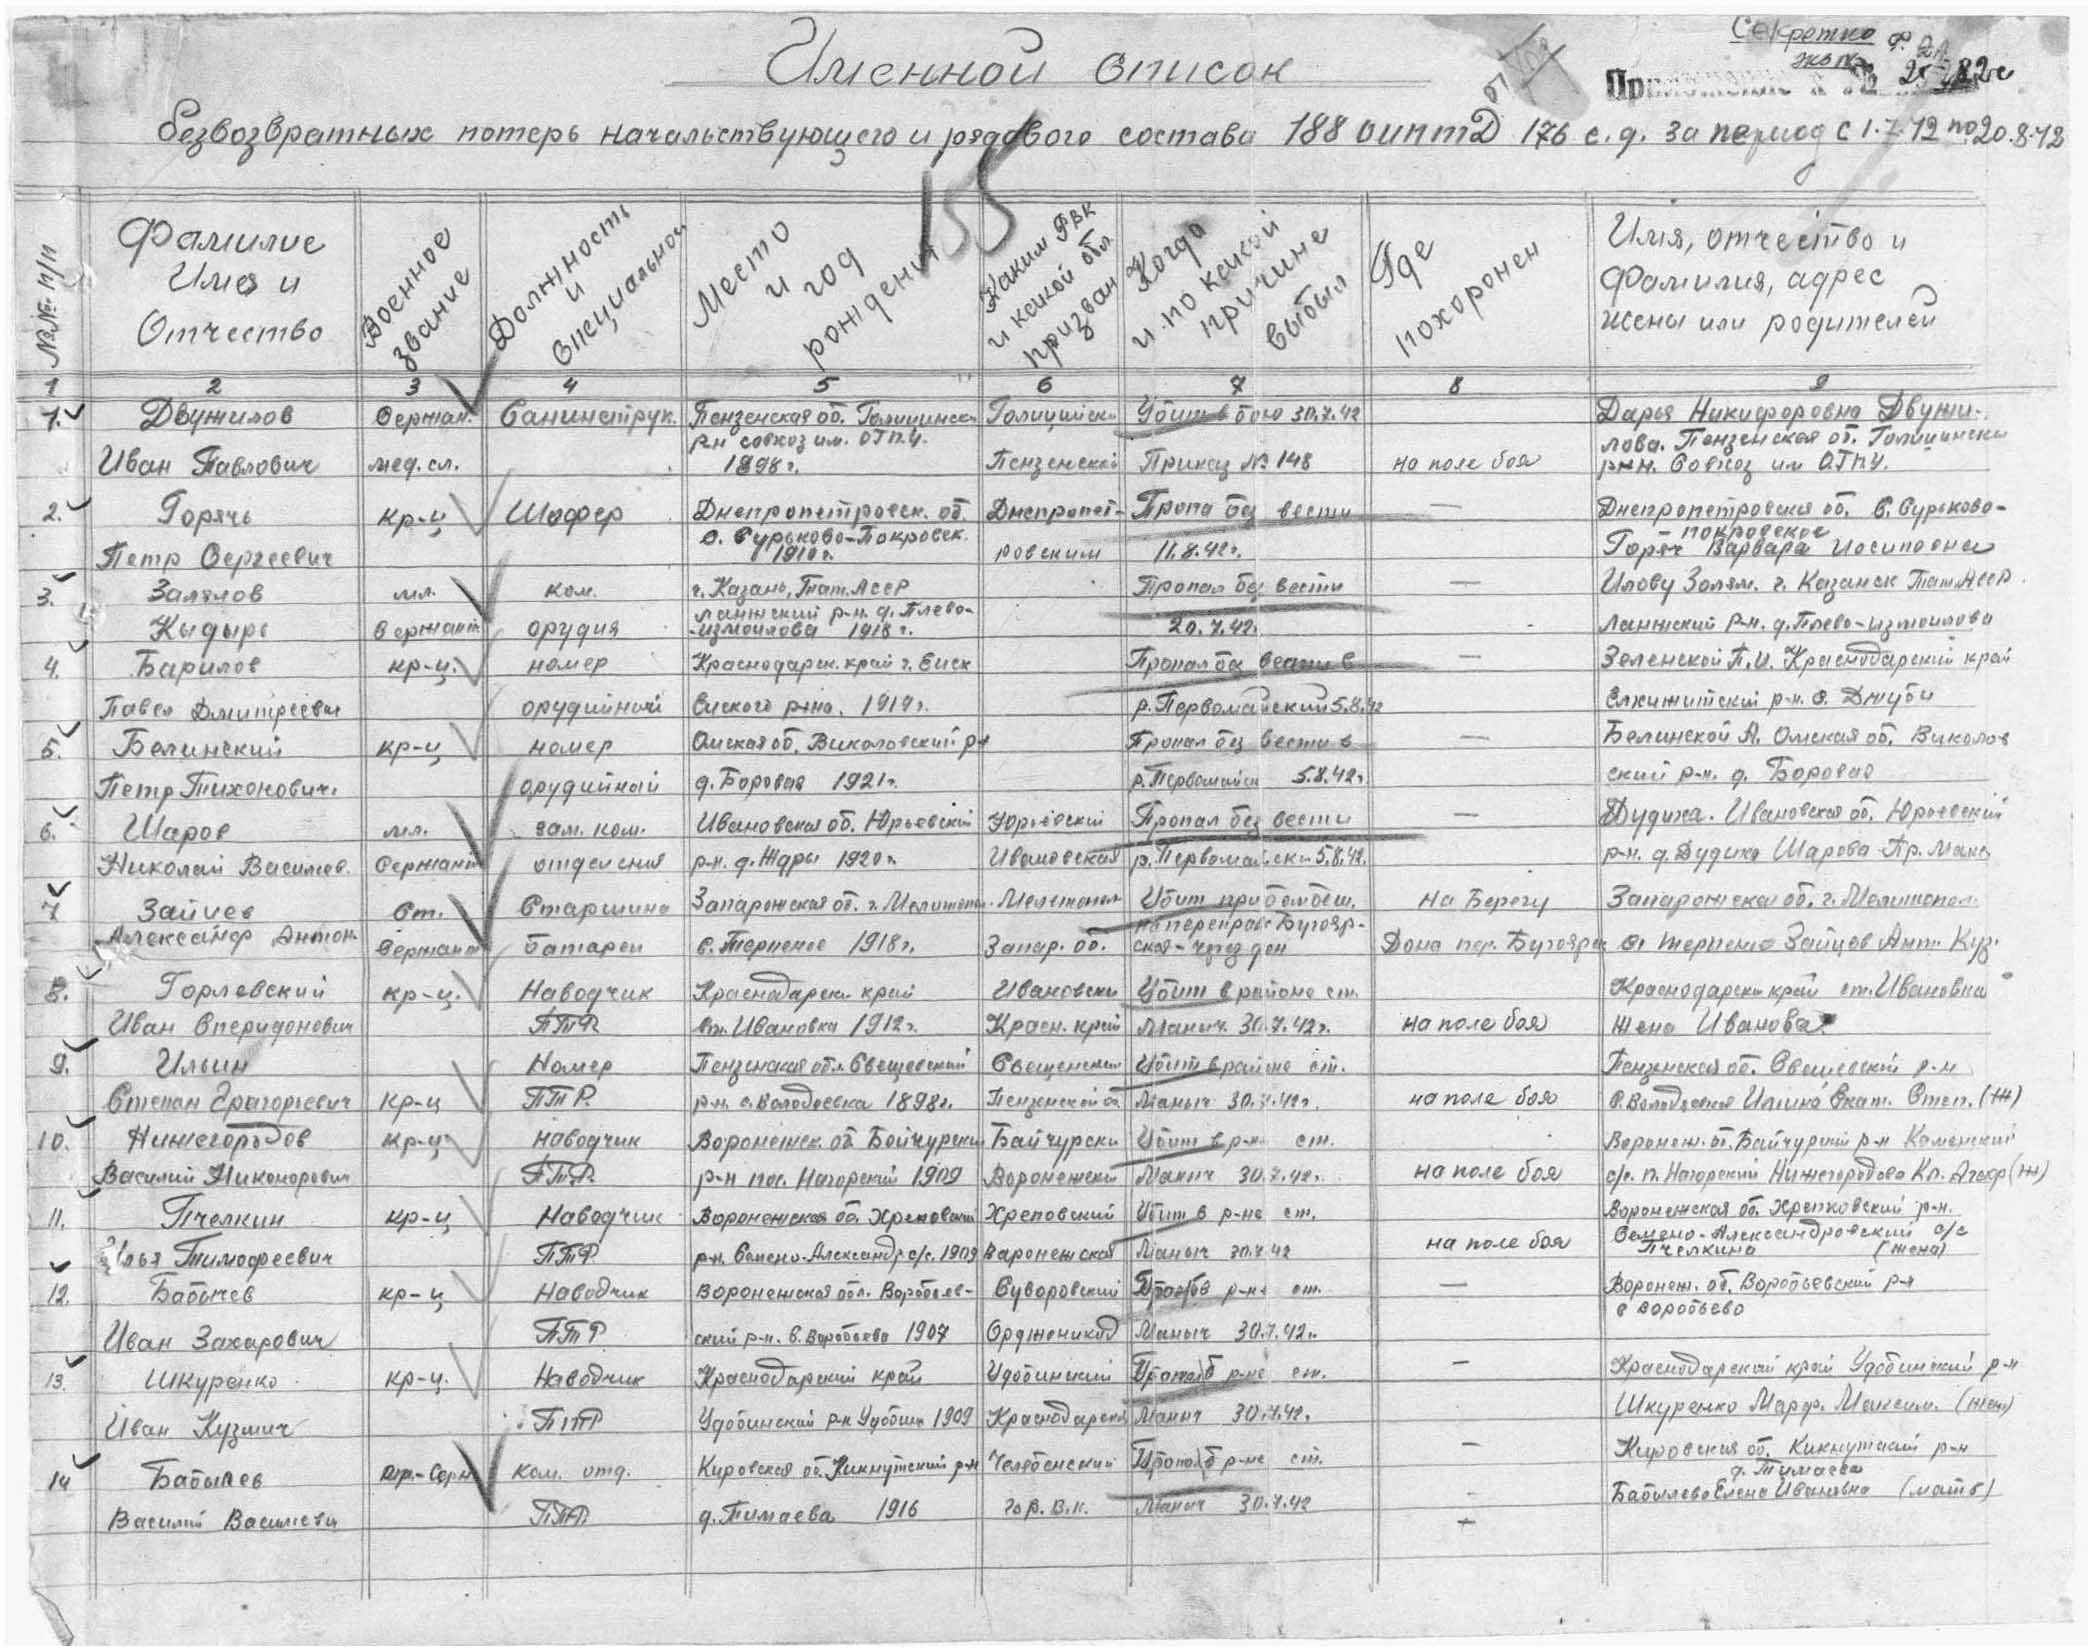 Секретно
экз
Именной список
безвозвратных потерь начальствующего и рядового состава 188 оиптД 176 с.д. за период с 1.7.42 по 20.8.42
155
№№ п/п
Фамилие Имя и Отчество
Военное звание
Должность и специальной
Место и год рождения
Каким РВК и какой обл призван
Когда и по какой причине выбыл
Где похоронен
Имя, отчество и фамилия, адрес жены или родителей
1 2 3 4 5 6 7 8 9
1. Двужилов Сержан. Санинструк. Пензенская об. Голицинск Голицински Убит в бою 30.7.42 Дарья Никифоровна Двужи-
р-н совхоз им. ОГПУ. лова. Пензенская об. Голицински
Иван Павлович мед. сл. 1898 г. Пензенской Приказ № 148 на поле боя р-н. Совхоз им ОГПУ.
2. Горячь кр-ц Шофер Днепропетровск. об. Днепропет- Пропа без вести — Днепропетровская об. С. Сурьково-
с. Сурьково-Покровск. покровское
Петр Сергеевич 1910 г. ровским 11.8.42 г. Горяч Варвара Иосиповна
3. Залялов мл. ком. г. Казань, Тат. АССР Пропал без вести — г. Казанск Тат. АССР
р-н. д. Плево-
Кыдырь Сержант орудия измоилова 1918 г. 20.7.42. р-н. д. Плево-измоилова
4. Барилов кр-ц. номер Краснодарск. край г. Ейск Пропал без вести в — Зеленской П.И. Краснодарский край
Павел Дмитриевич орудийной Ейского р-на. 1919 г. р. Первомайский 5.8.42 р-н. с. Джуби
5. Белинский кр-ц номер Омская об. Викаловский р-н Пропал без вести в — Белинской А. Омская об. Викалов
Петр Тихонович. орудийной д. Боровая 1921 г. р. Первомайск 5.8.42 г. ский р-н. д. Боровая
6. Шаров мл. зам. ком. Ивановская об. Юрьевский Юрьевский Пропал без вести — Дудика. Ивановская об. Юрьевский
Николай Васильев. Сержант отделения р-н. д. Ждры 1920 г. Ивановская р. Первомайски 5.8.42. р-н. д. Дудика Шарова Пр. Макс
7 Зайцев Ст. Старшина Запарожская об. г. Мелитопол. Мелитопол Убит при бомбеш. на Берегу Запарожская об. г. Мелитопол.
на переправе Бугояр-
Александр Антон. Сержант батареи с. Терпение 1918 г. Запар. об. ская - через дон Дона пер. Бугояр с. терпение Зайцев Ант. Куз.
8. Горлевский кр-ц. Наводчик Краснодарски край Ивановски Убит в районе ст. Краснодарски край ст. Ивановка
Иван Спиридонович ПТР ст. Ивановка 1912 г. Красн. край Маныч. 30.7.42 г. на поле боя жена Иванова
9. Ильин Номер Пензенская обл. Свещевский Свещенски Убит в районе ст. Пензенская об. Свещевский р-н
Степан Григорьевич кр-ц ПТР. р-н. с. Володоевка 1898 г. Пензенской об Маныч 30.7.42 г. на поле боя Ильина Екат. Степ. (ж)
10. Нижегородов кр-ц наводчик Воронежск. об Байчурски Байчурски Убит в р-не ст. Воронеж. об. Байчурский р-н Каменский
Василий Никонорович ПТР. р-н пос. Нагорский 1909 Воронежски Маныч 30.7.42 г. на поле боя с/с. п. Нагорский Нижегородова Кл. (ж)
11. Пчелкин кр-ц Наводчик Воронежская об. Хреповский Хреповский Убит в р-не ст. Воронежская об. Хрепковский р-н.
Илья Тимофеевич ПТР р-н. Семено-Александр с/с. 1909 Варонежская Маныч 30.7.42 на поле боя Семено-Александровский с/с
Пчелкина (жена)
12. Бабичев кр-ц Наводчик Воронежская обл. Воробьев- Суворовский в р-не ст. — Воронеж. об. Воробьевский р-н
с воробьево
Иван Захарович ПТР ский р-н. с. Воробьево 1907 Орджоникид Маныч 30.7.42 г.
13. Шкуренко кр-ц. Наводчик Краснодарский край Удобинский в р-не ст. — Краснодарский край Удобинский р-н
Иван Кузмич ПТР Удобинский р-н Удобин 1909 Краснодарски Маныч 30.7.42. Шкуренко Марф. Максим. (жен)
14 Бабылев ком. отд. Кировская об. Кикнутский р-н Челябенский в р-не ст. — Кировская об. Кикнутский р-н
д. Тимаева
Василий Васильеви ПТР д. Тимаева 1916 Го Р.В.К. Маныч 30.7.42 Бабылева Елена Ивановна (мать)